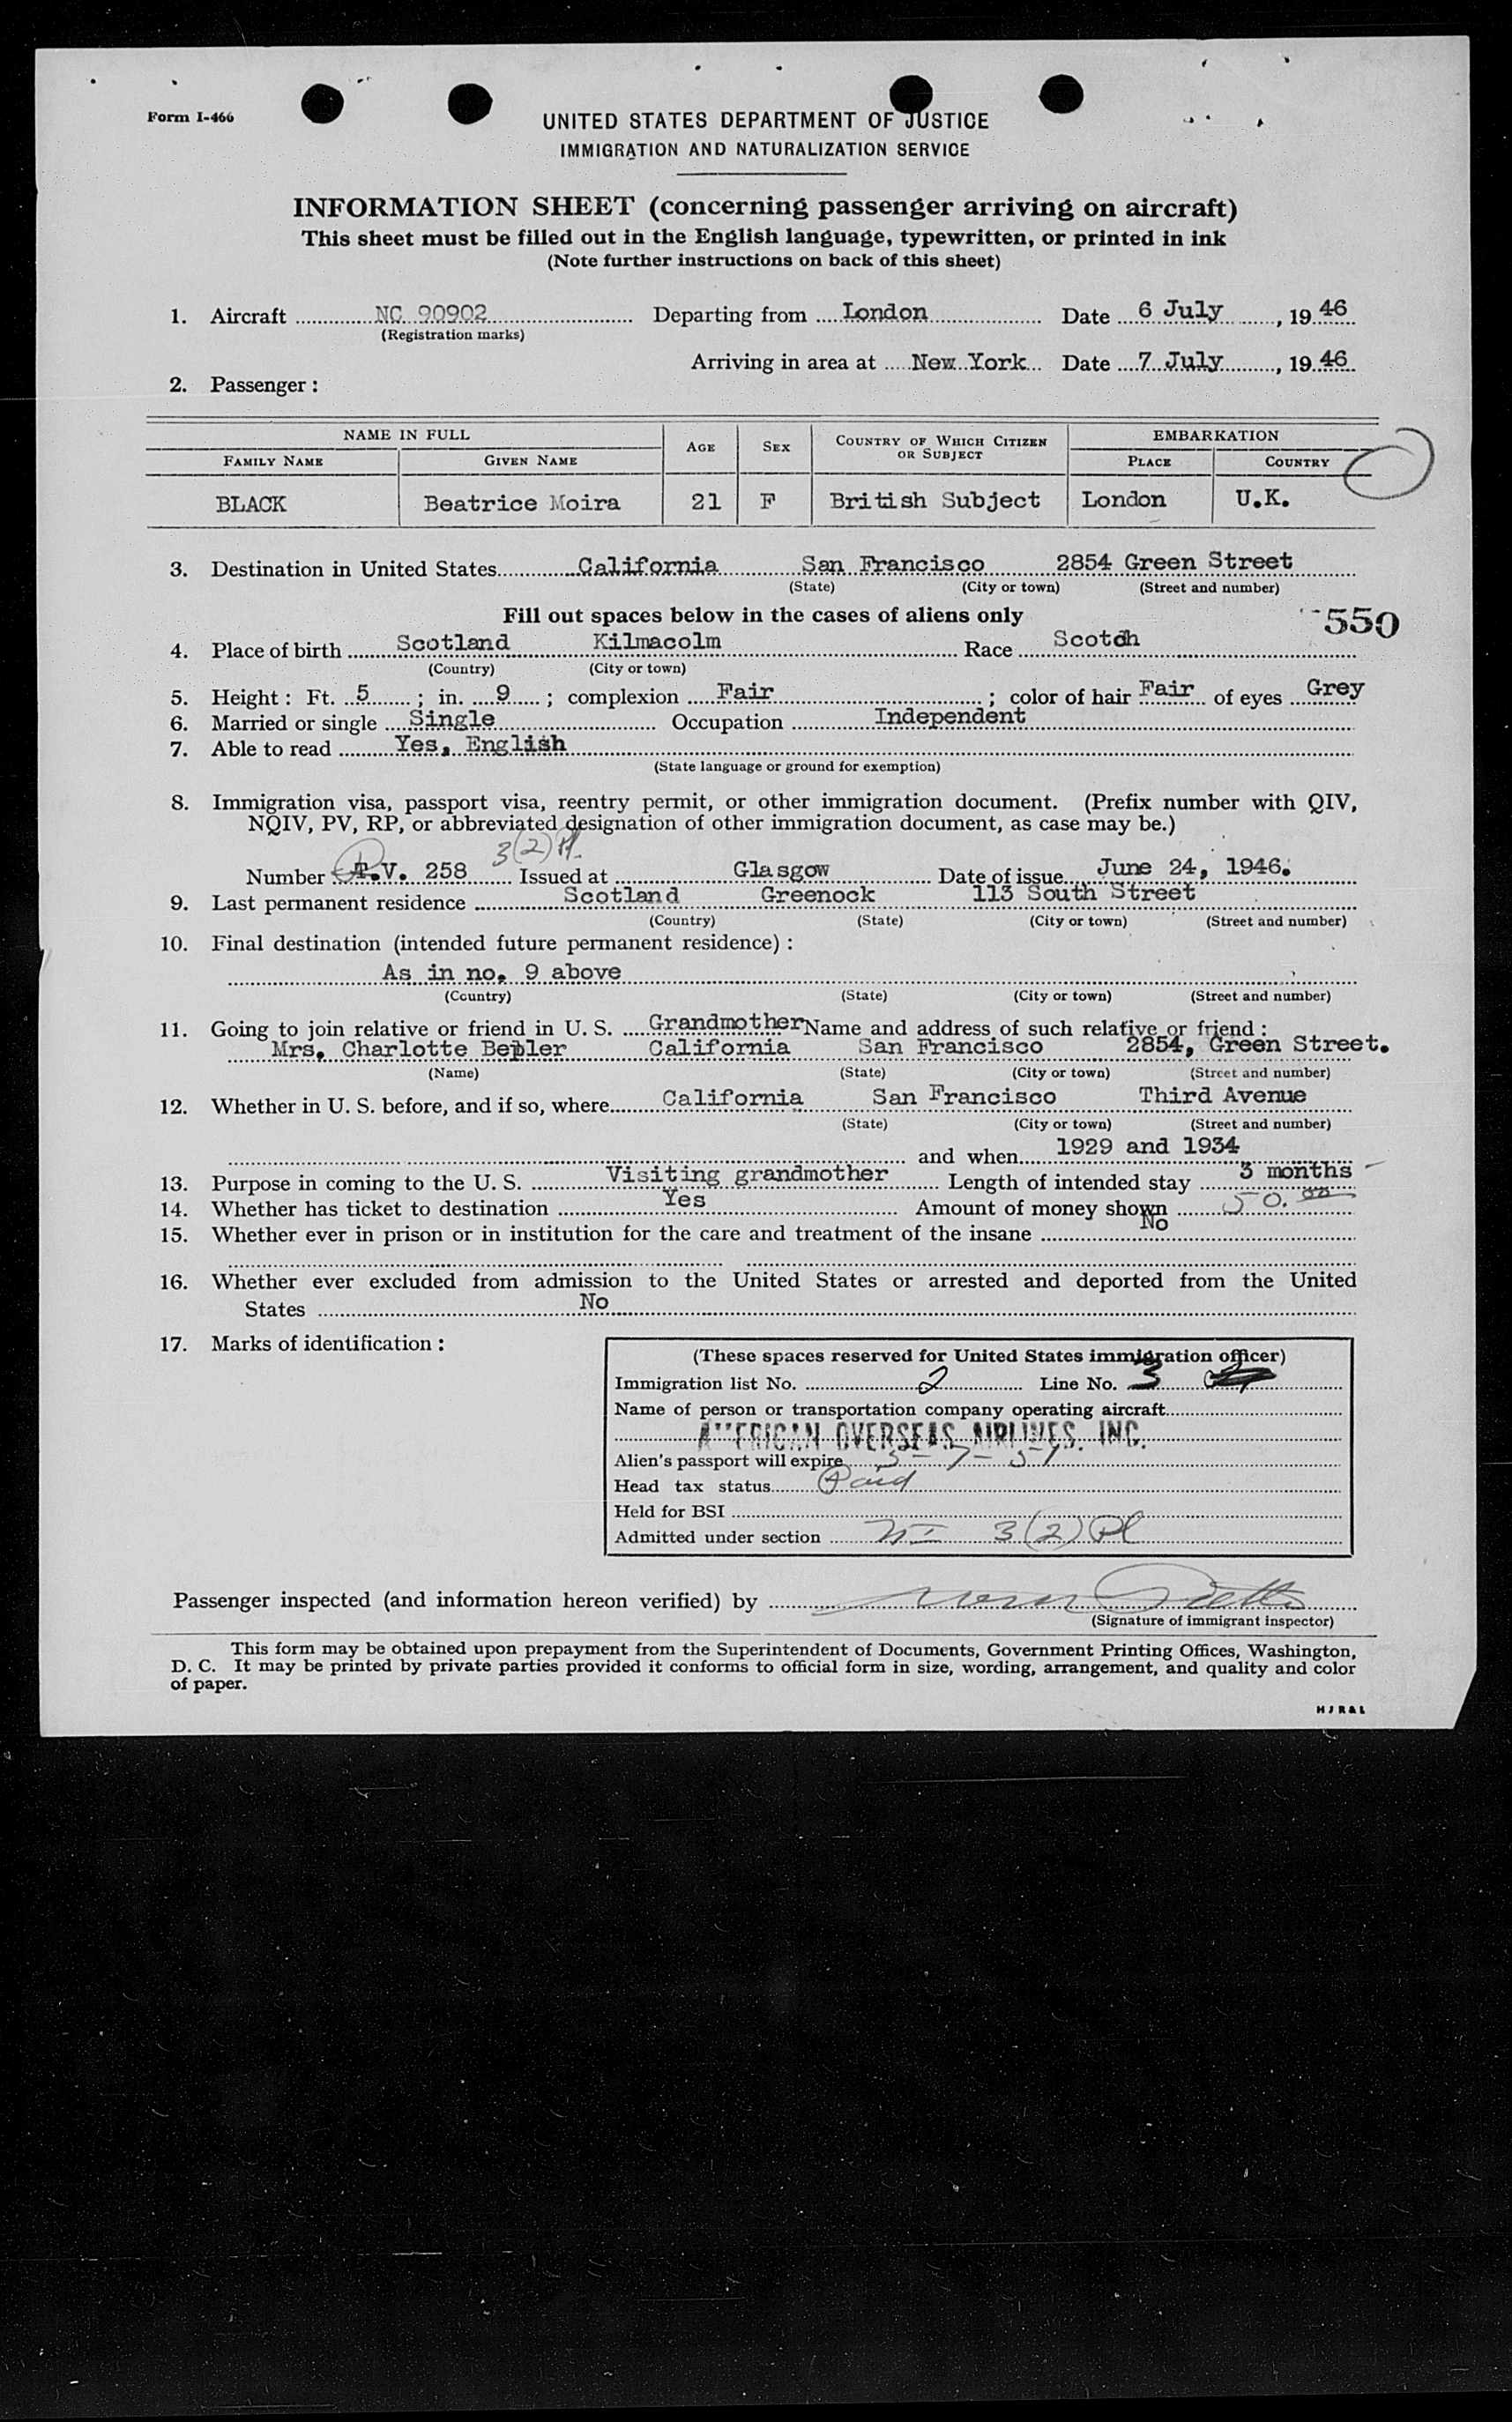 Form I-466
UNITED STATES DEPARTMENT OF JUSTICE
IMMIGRATION AND NATURALIZATION SERVICE
INFORMATION SHEET (concerning passenger arriving on aircraft)
This sheet must be filled out in the English language, typewritten, or printed in ink
(Note further instructions on back of this sheet)
1. Aircraft NC 90902 Departing from London Date 6 July, 1946
(Registration marks)
Arriving in area at New York Date 7 July, 1946
2. Passenger:
NAME IN FULL AGE SEX COUNTRY OF WHICH CITIZEN OR SUBJECT EMBARKATION
FAMILY NAME GIVEN NAME PLACE COUNTRY
BLACK Beatrice Moira 21 F British Subject London U.K.
3. Destination in United States California San Francisco 2854 Green Street
(State) (City or town) (Street and number)
Fill out spaces below in the cases of aliens only
550
4. Place of birth Scotland Kilmacolm Race Scotch
(Country) (City or town)
5. Height: Ft. 5; in. 9; complexion Fair; color of hair Fair of eyes Grey
6. Married or single Single Occupation Independent
7. Able to read Yes, English
(State language or ground for exemption)
8. Immigration visa, passport visa, reentry permit, or other immigration document. (Prefix number with QIV,
NQIV, PV, RP, or abbreviated designation of other immigration document, as case may be.)
3(2) Pl.
Number T.V. 258 Issued at Glasgow Date of issue June 24, 1946.
9. Last permanent residence Scotland Greenock 113 South Street
(Country) (State) (City or town) (Street and number)
10. Final destination (intended future permanent residence):
As in no. 9 above
(Country) (State) (City or town) (Street and number)
11. Going to join relative or friend in U. S. Grandmother Name and address of such relative or friend:
Mrs. Charlotte California San Francisco 2854, Green Street.
(Name) (State) (City or town) (Street and number)
12. Whether in U. S. before, and if so, where California San Francisco Third Avenue
(State) (City or town) (Street and number)
and when 1929 and 1934
13. Purpose in coming to the U. S. Visiting grandmother Length of intended stay 3 months
14. Whether has ticket to destination Yes Amount of money shown 50.00
15. Whether ever in prison or in institution for the care and treatment of the insane No
16. Whether ever excluded from admission to the United States or arrested and deported from the United
States No
17. Marks of identification:
(These spaces reserved for United States immigration officer)
Immigration list No. 2 Line No. 3
Name of person or transportation company operating aircraft
AMERICAN OVERSEAS AIRLINES, INC.
Alien's passport will expire 3-7-51
Head tax status Paid
Held for BSI
Admitted under section 3(2) Pl
Passenger inspected (and information hereon verified) by
(Signature of immigrant inspector)
This form may be obtained upon prepayment from the Superintendent of Documents, Government Printing Offices, Washington,
D. C. It may be printed by private parties provided it conforms to official form in size, wording, arrangement, and quality and color
of paper.
HJR&L